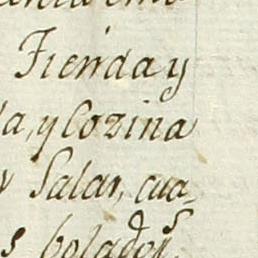 Tienda y
la, y Cozina
y Salar, cua-
s bolador.s